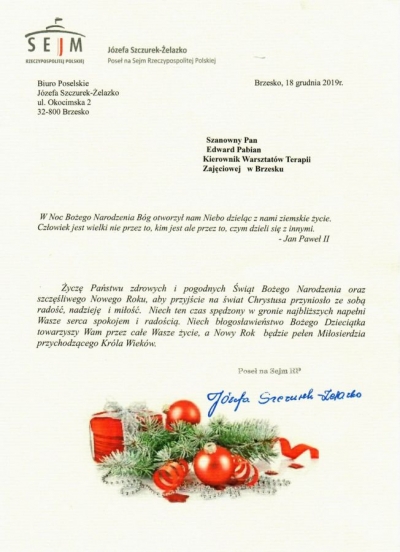 SEJM
RZECZYPOSPOLITEJ POLSKIEJ
Józefa Szczurek-Żelazko
Poseł na Sejm Rzeczypospolitej Polskiej
Biuro Poselskie
Józefa Szczurek-Żelazko
ul. Okocimska 2
32-800 Brzesko
Brzesko, 18 grudnia 2019r.
Szanowny Pan
Edward Pabian
Kierownik Warsztatów Terapii
Zajęciowej w Brzesku
W Noc Bożego Narodzenia Bóg otworzył nam Niebo dzieląc z nami ziemskie życie.
Człowiek jest wielki nie przez to, kim jest ale przez to, czym dzieli się z innymi.
- Jan Paweł II
Życzę Państwu zdrowych i pogodnych Świąt Bożego Narodzenia oraz
szczęśliwego Nowego Roku, aby przyjście na świat Chrystusa przyniosło ze sobą
radość, nadzieję i miłość. Niech ten czas spędzony w gronie najbliższych napełni
Wasze serca spokojem i radością. Niech błogosławieństwo Bożego Dzieciątka
towarzyszy Wam przez całe Wasze życie, a Nowy Rok będzie pełen Miłosierdzia
przychodzącego Króla Wieków.
Poseł na Sejm RP
Józefa Szczurek-Żelazko